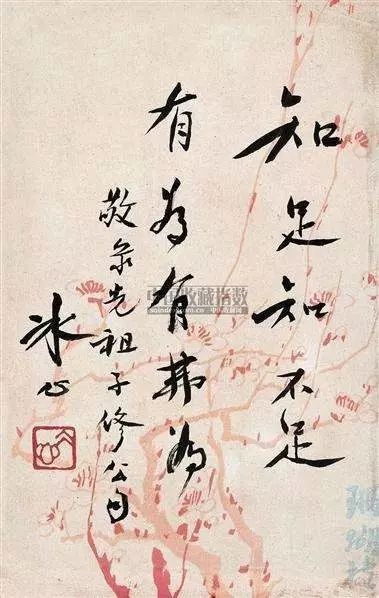 知足知不足
有为有弗为
敬录先祖子修公句
冰心
中国收藏指数